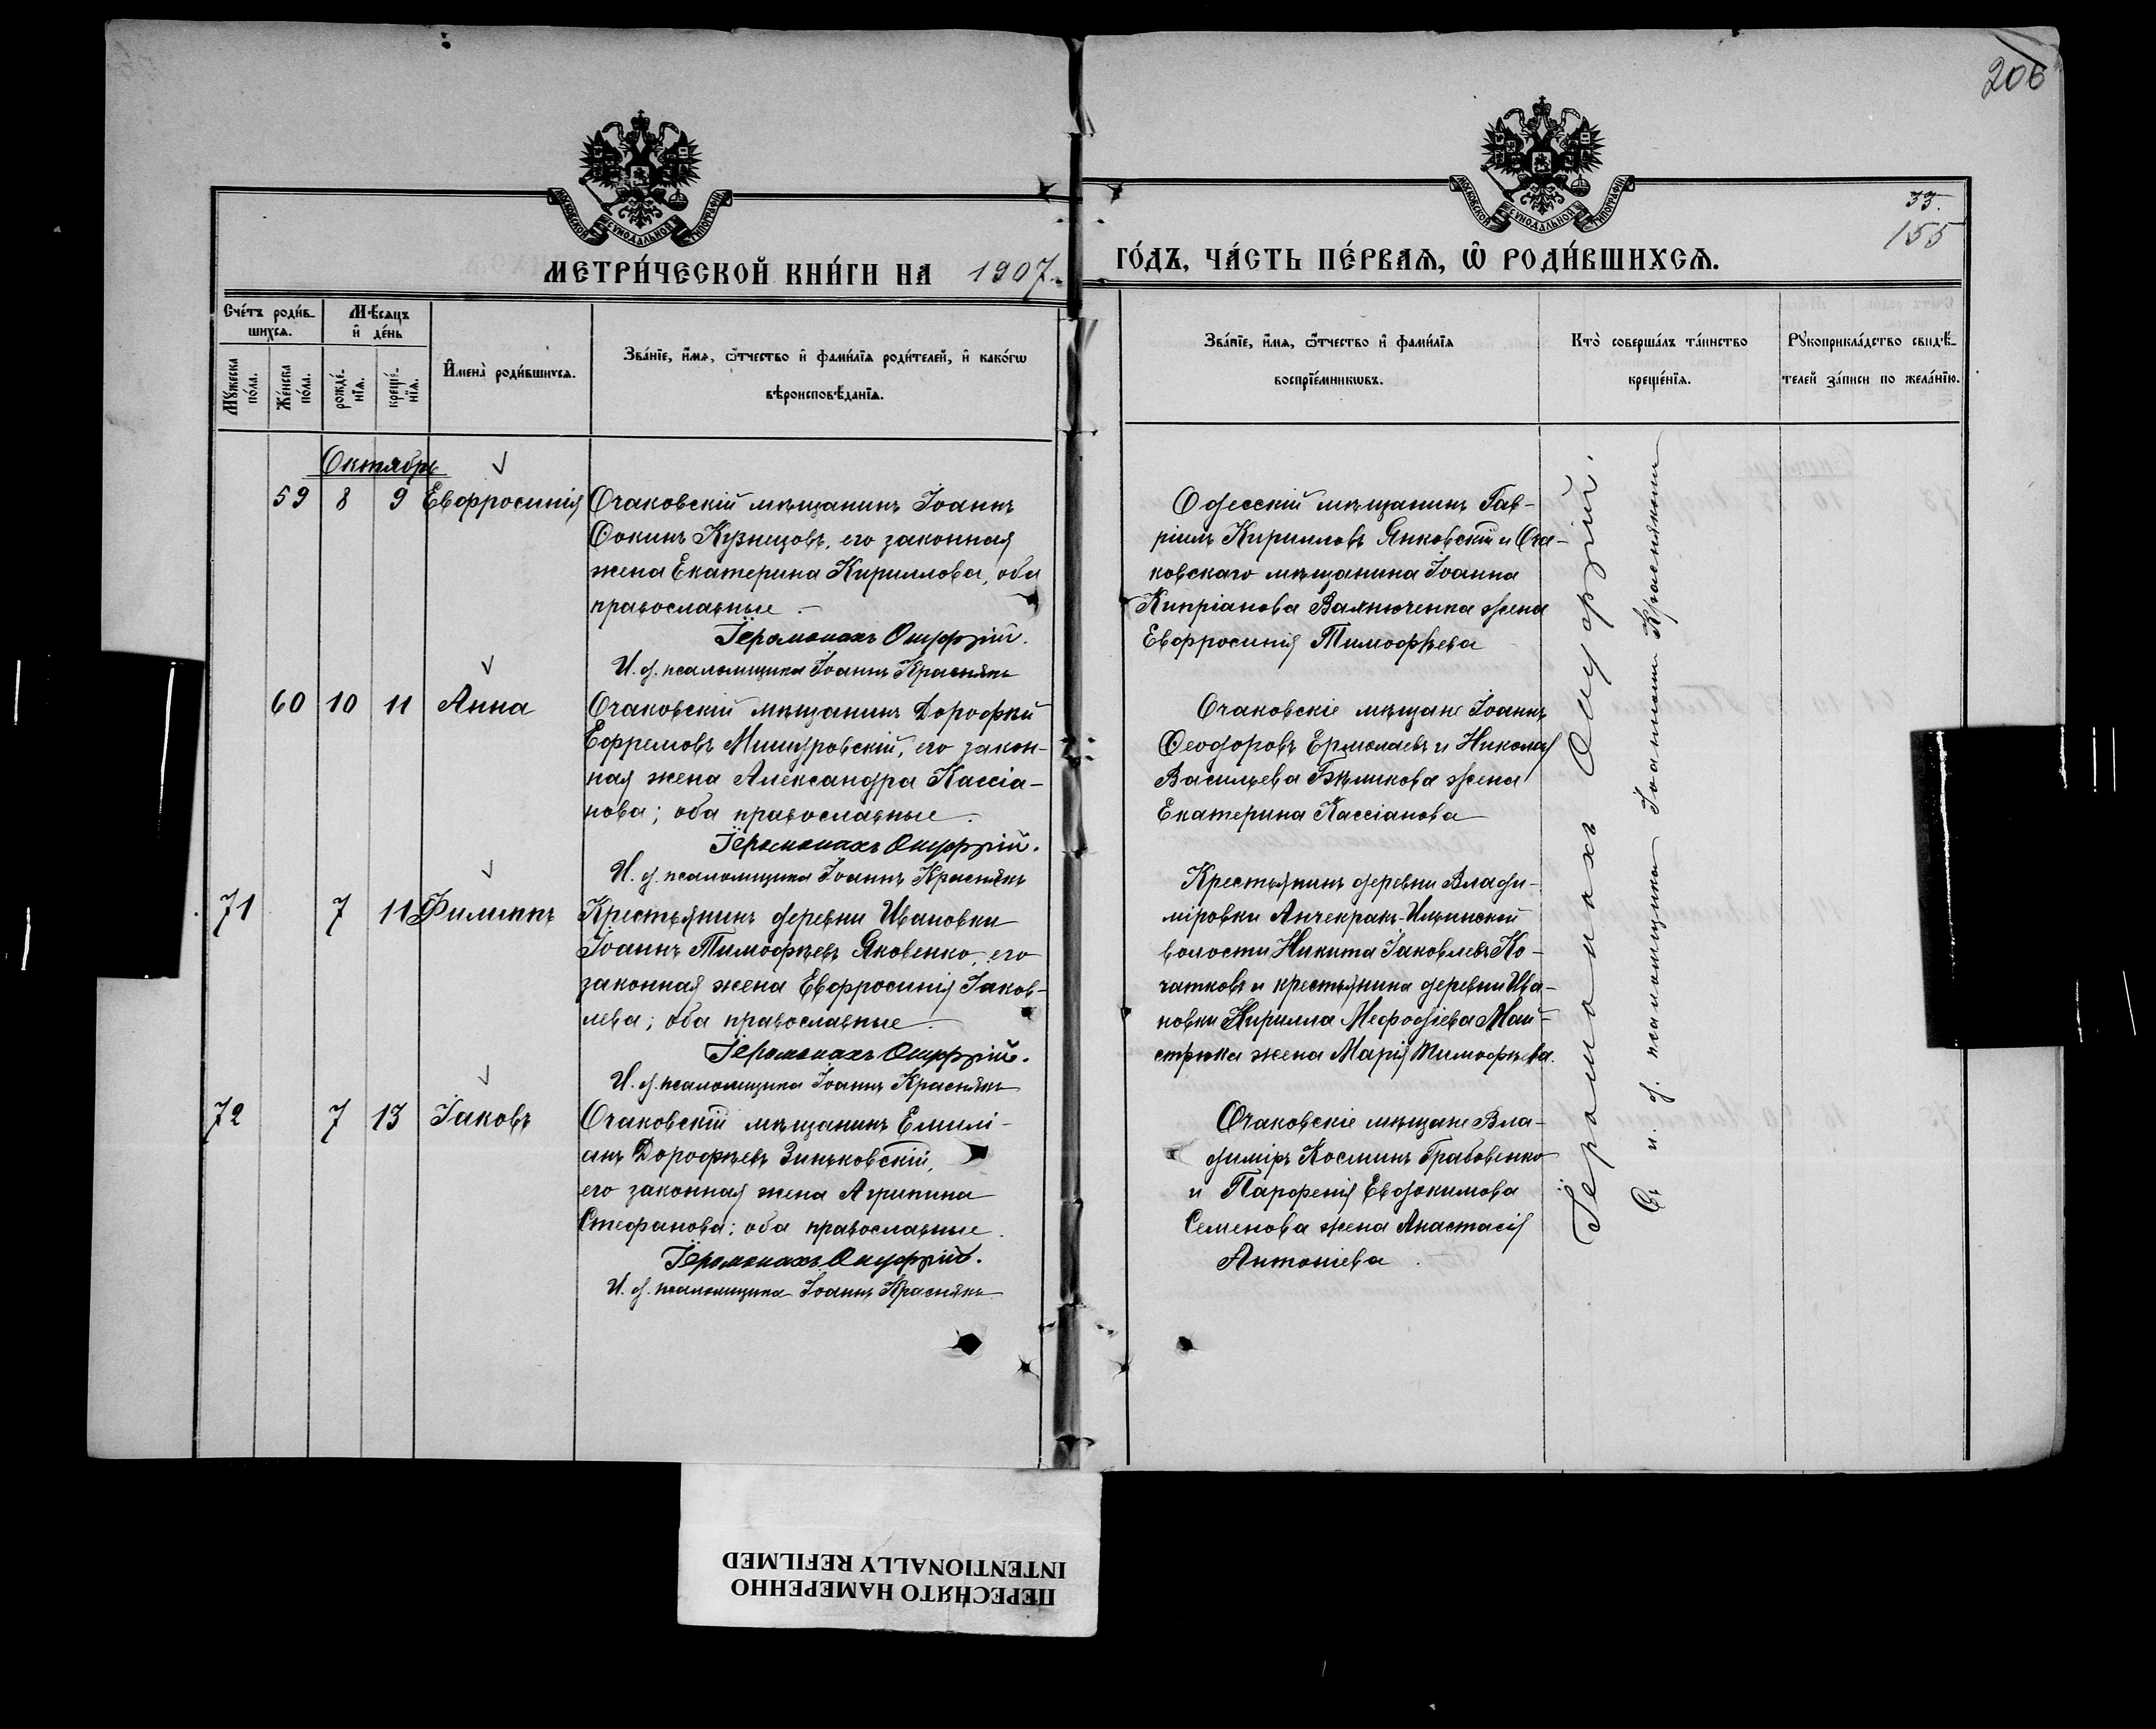 206
33.
155
МОСКОВСКОЙ СѴНОДАЛЬНОЙ ТИПОГРАФІИ
МОСКОВСКОЙ СѴНОДАЛЬНОЙ ТИПОГРАФІИ
МЕТРИ́ЧЕСКОЙ КНИ́ГИ НА 1907.
ГО́ДЪ, ЧА́СТЬ ПЕ́РВАѦ, Ѡ҆ РОДИ́ВШИХСѦ.
Сче́тъ роди́в-
шихсѧ.
Мѣ́сѧцъ
и҆ де́нь
Мꙋ́жеска
по́ла.
Же́нска
по́ла.
рожде́-
нїѧ.
креще́-
нїѧ.
И҆мена̀ роди́вшихсѧ.
Зва́нїе, и҆́мѧ, ѻ҆́тчество и҆ фами́лїѧ роди́телей, и҆ како́гѡ
вѣроисповѣ́данїѧ.
Зва́нїе, и҆́мѧ, ѻ҆́тчество и҆ фами́лїѧ
воспрїе́мникѡвъ.
Кто̀ соверша́лъ та́инство
креще́нїѧ.
Рꙋкоприкла́дство свидѣ́-
телей за́писи по жела́нїю.
Октябрь
59 8 9 Евфросинія
Очаковскій мѣщанинъ Іоаннъ
Ѳокинъ Кузнецовъ, его законная
жена Екатерина Кириллова, оба
православные
Іеромонахъ Онуфрій.
И. д. псаломщика Іоаннъ Краснякъ
Одесскій мѣщанинъ Гав-
ріилъ Кирилловъ Янковскій и Оча-
ковскаго мѣщанина Іоанна
Кипріанова Валнюченка жена
Евфросинія Тимофѣева
60 10 11 Анна
Очаковскій мѣщанинъ Дорофей
Ефремовъ Мишуровскій, его закон-
ная жена Александра Кассіа-
нова; оба православные.
Іеромонахъ Онуфрій.
И. д. псаломщика Іоаннъ Краснякъ
Очаковскіе мѣщане Іоаннъ
Ѳеодоровъ Ермолаевъ и Николая
Васильева Бѣликова жена
Екатерина Кассіанова
71 7 11 Филиппъ
Крестьянинъ деревни Ивановки
Іоаннъ Тимофѣевъ Яковенко, его
законная жена Евфросинія Іаков-
лева; оба православные.
Іеромонахъ Онуфрій.
И. д. псаломщика Іоаннъ Краснякъ
Крестьянинъ деревни Влади-
міровки Анчекрак-Ильинской
волости Никита Іаковлевъ Ко-
чатковъ и крестьянина деревни Ива-
новки Кирилла Меѳодіева Май-
стрюка жена Марія Тимофѣева.
72 7 13 Іаковъ
Очаковскій мѣщанинъ Емилі-
анъ Дорофѣевъ Зиньковскій,
его законная жена Агрипина
Стефанова; оба православные.
Іеромонахъ Онуфрій.
И. д. псаломщика Іоаннъ Краснякъ
Очаковскіе мѣщане Вла-
диміръ Косминъ Грабовенко
и Парфенія Евдокимова
Семенова жена Анастасія
Антоніева.
Іеромонахъ Онуфрій.
Съ и. д. псаломщика Іоанномъ Краснякомъ
ПЕРЕСНЯТО НАМЕРЕННО
INTENTIONALLY REFILMED